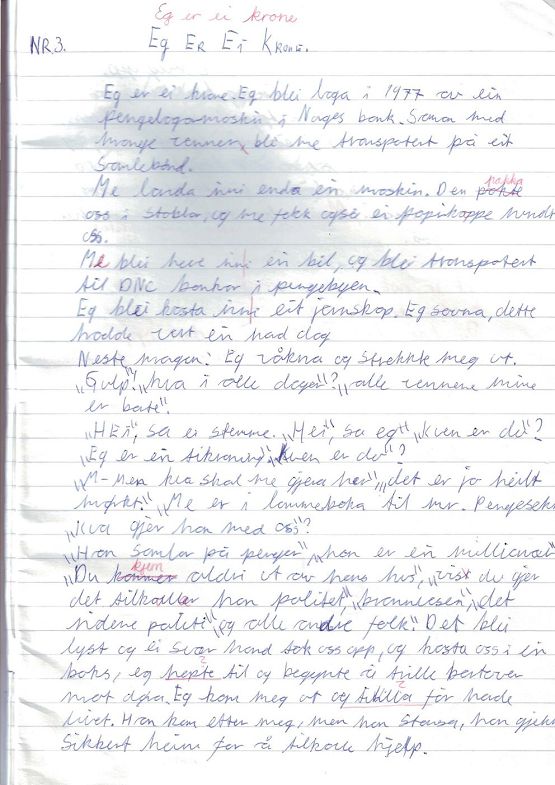 Eg er ei krone
NR 3. EG ER EI KRONE.
Eg er ei krone. Eg blei laga i 1977 av ein
pengelagamaskin i Norges bank. Saman med
mange venner, ble me transpotert på eit
Samlebånd.
Me landa inni enda ein maskin. Den pakte pakka
oss i stablar, og me fekk også ei papikappe rundt
oss.
Me blei heve inni ein bil, og blei transpotert
til DNC banken i pengebyen.
Eg blei kasta inni eit jernskap. Eg sovna, dette
hadde vert ein had dag
Neste mragen: Eg våkna og strekkte meg ut.
"Gulp! hva i alle dager"? "alle vennene mine
er bate".
"HEi", sa ei stemme. "Hei", sa eg "kven er du"?
"Eg er ein tikroning, kven er du"?
"M-Men kva skal me gjera her", "det er jo heilt
mørkt". "Me er i lommeboka til mr. Pengesekk
"kva gjer han med oss"?
"Han samlar på penger", "han er ein millionær"
"Du kommer kjem aldri ut av hans hus", "vist du gjer
det tilkaller han politet, brannvesen, det
ridene politi", og alle andre folk". Det blei
lyst og ei svær hand tok oss opp, og kasta oss i ein
boks, eg hepte til og begynte å trille bortover
mot døra. Eg kom meg ut og for harde
livet. Han kom etter meg, men han stansa, han gjekk
Sikkert heim for å tilkalle hjelp.